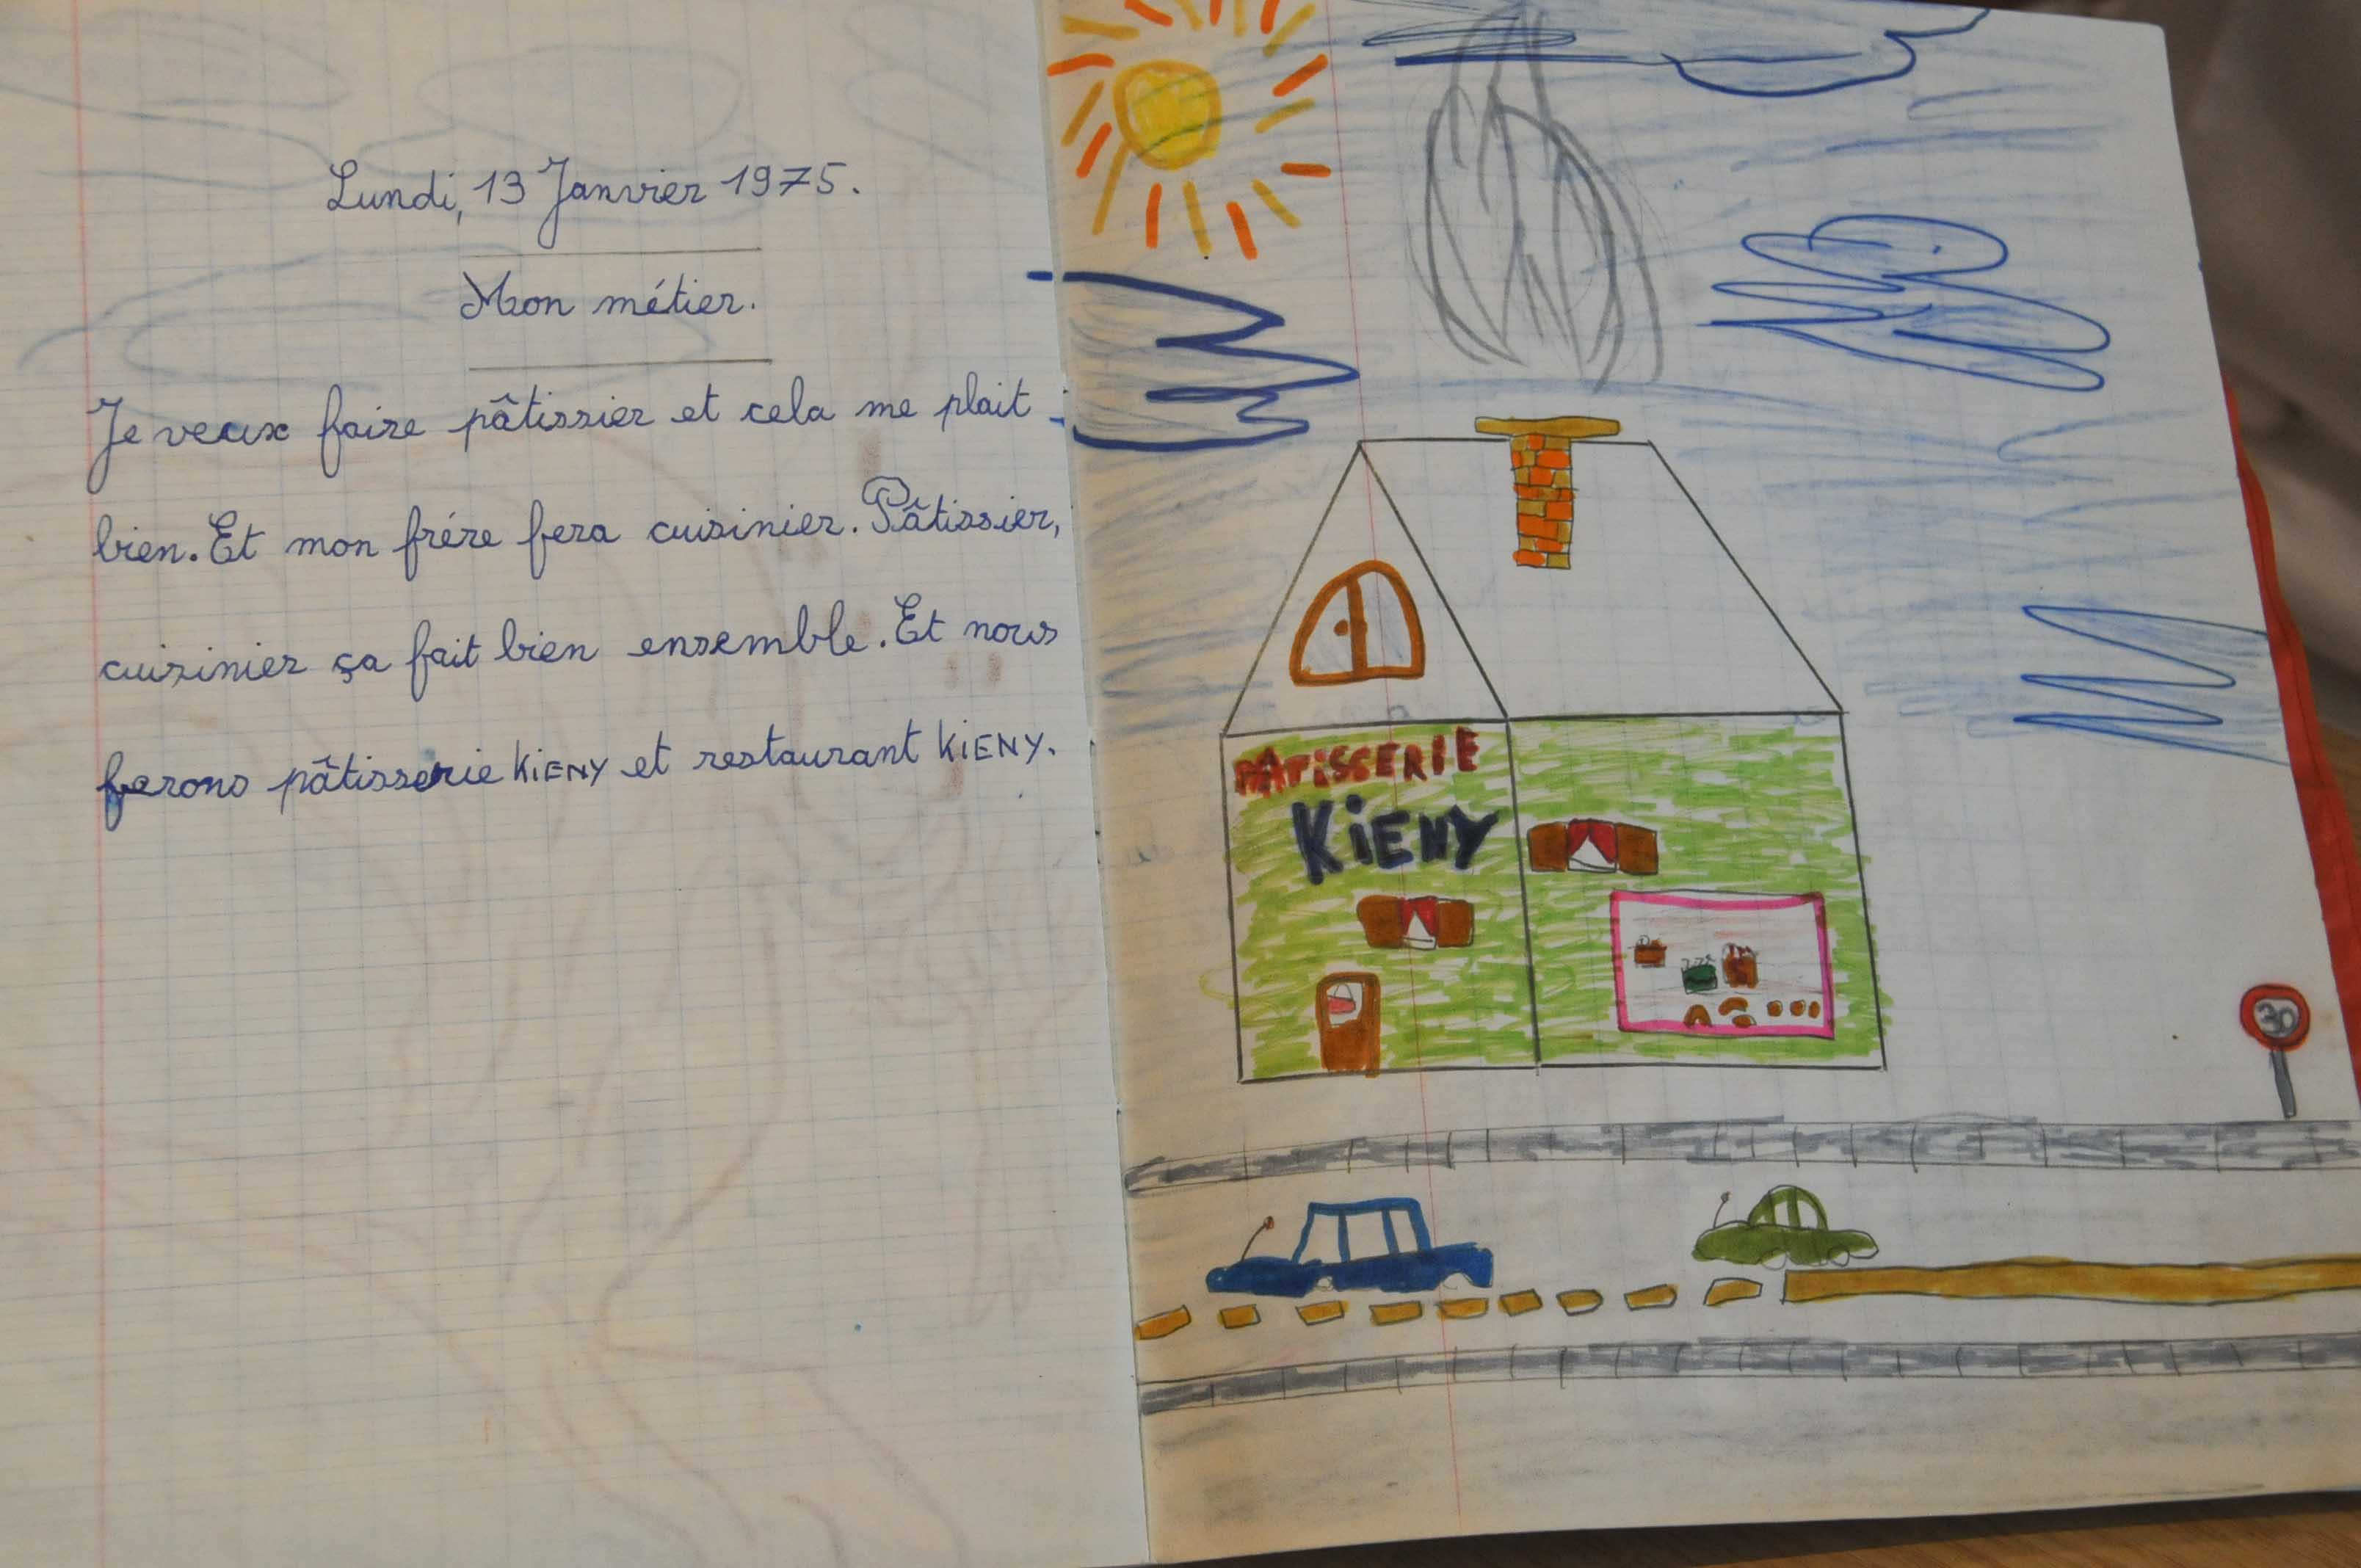 Lundi, 13 Janvier 1975.
Mon métier.
Je veux faire pâtissier et cela me plait
bien. Et mon frére fera cuisinier. Pâtissier,
cuisinier ça fait bien ensemble. Et nous
ferons pâtisserie KiENY et restaurant KiENY.
PÂTiSSERIE
KiENY
30